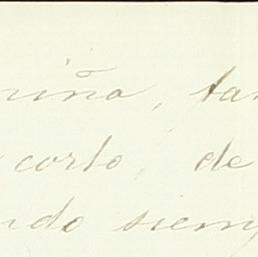 niña, tan
corto, de
ndo siemp